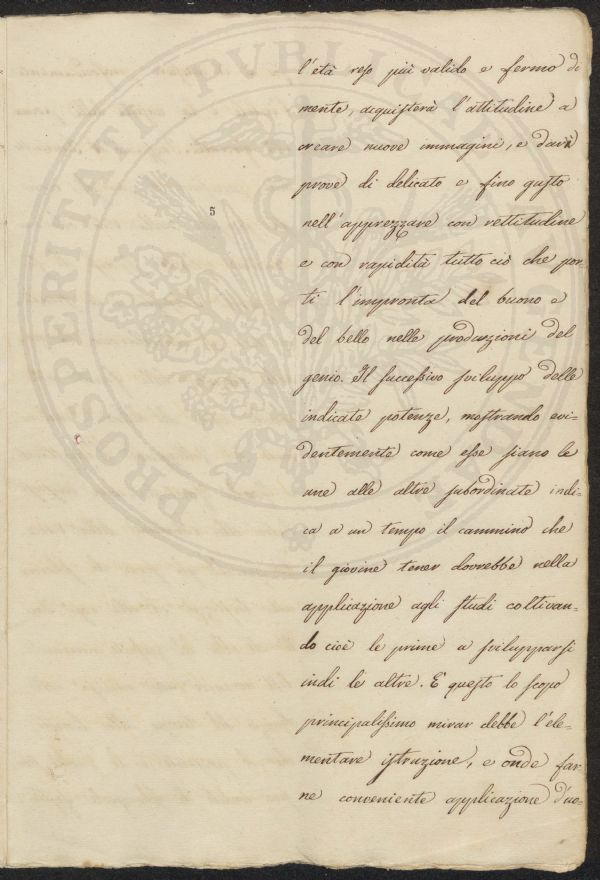 PROSPERITATI PVBLICAE
5
l'età reso più valido e fermo di
mente, acquisterà l'attitudine a
creare nuove immagini, e darà
prove di delicato e fino gusto
nell'apprezzare con rettitudine
e con rapidità tutto ciò che por-
ti l'impronta del buono e
del bello nelle produzioni del
genio. Il successivo sviluppo delle
indicate potenze, mostrando evi=
dentemente come esse siano le
une alle altre subordinate indi=
ca a un tempo il cammino che
il giovine tener dovrebbe nella
applicazione agli studi coltivan=
do cioè le prime a svilupparsi
indi le altre. E questo lo scopo
principalissimo mirar debbe l'ele=
mentare istruzione, e onde far=
ne conveniente applicazione d'uo=